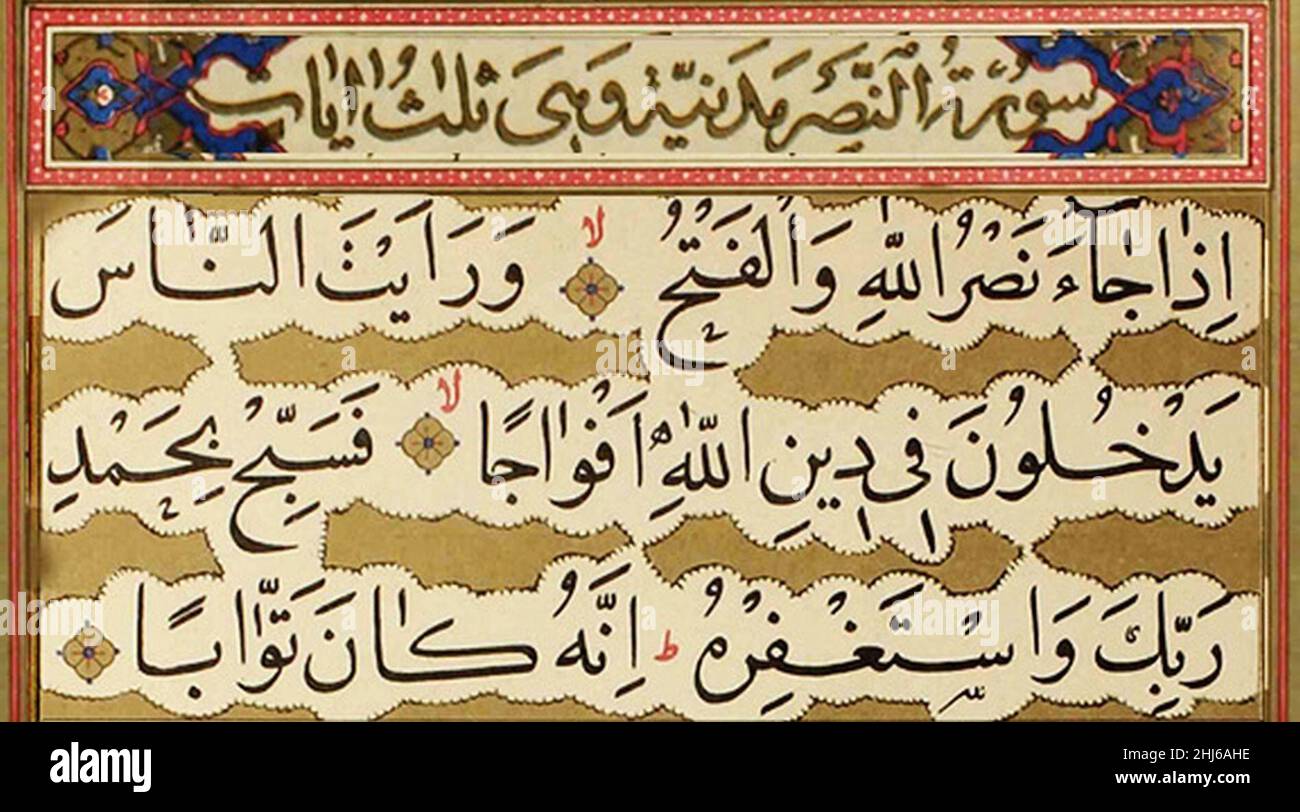 سورة النصر مدنية وهى ثلاث ايات
اِذَا جَٓاءَ نَصْرُ اللّٰهِ وَالْفَتْحُ ۙ وَرَاَيْتَ النَّاسَ
يَدْخُلُونَ فى دينِ اللّٰهِ اَفْوَاجًا ۙ فَسَبِّحْ بِحَمْدِ
رَبِّكَ وَاسْتَغْفِرْهُ ط اِنَّهُ كَانَ تَوَّابًا
alamy
Image ID: 2HJ6AHE
www.alamy.com